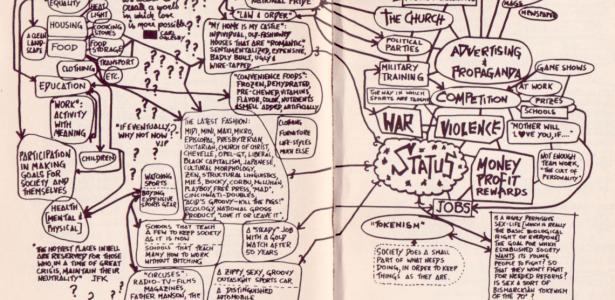 EQUALITY
HOUSING
FOOD
HEAT
LIGHT
COOKING
STOVES
FOOD
STORAGE
A CLEAN
LAND-
SCAPE
CLOTHING
TRANSPORT
ETC.
EDUCATION
"WORK":
ACTIVITY
WITH
MEANING
PARTICIPATION
IN MAKING
GOALS FOR
SOCIETY AND
THEMSELVES
CHILDREN
HEALTH
(MENTAL &
PHYSICAL)
"IF EVENTUALLY,
WHY NOT NOW?"
V.J.P
"THE HOTTEST PLACES IN HELL
ARE RESERVED FOR THOSE
WHO, IN A TIME OF GREAT
CRISIS, MAINTAIN THEIR
NEUTRALITY" JFK
NATIONAL PRIDE
"LAW & ORDER"
"MY HOME IS MY CASTLE":
INDIVIDUAL, OLD-FASHIONED
HOUSES THAT ARE "ROMANTIC",
SENTIMENTALIZED, EXPENSIVE,
BADLY BUILT, UGLY &
WIRE-TAPPED
"CONVENIENCE FOODS":
FROZEN, DEHYDRATED,
PRE-CHEWED, VITAMINS,
FLAVOR, COLOR, NUTRIENTS
& SMELL ADDED ARTIFICIALLY
THE LATEST FASHION:
MIDI, MINI, MAXI, MICRO,
EPISCOPAL, PRESBYTERIAN
UNITARIAN, CHURCH OF CHRIST,
CHEVELLE, OPEL-GT, LIBERAL,
BLACK CAPITALISM, JAPANESE,
CULTURAL MORPHOLOGY,
ZEN, STRUCTURAL LINGUISTICS,
MIES, BUCKY, CORBU, McLUHAN,
PLAYBOY, FREE PRESS, "MAD",
CINCINNATI-DOUBLES,
"ACID'S GROOVY-KILL THE PIGS!"
ECOLOGY, NATIONAL GROSS
PRODUCT, "LOVE IT OR LEAVE IT"
CLOTHING
FURNITURE
LIFE-STYLES
MUCH ELSE
WATCHING
SPORTS
BUYING
EXPENSIVE
SPORTS GEAR
SCHOOLS THAT TEACH
A FEW TO KEEP SOCIETY
AS IT IS NOW
SCHOOLS THAT TEACH
MANY HOW TO WORK
WITHOUT BITCHING
A "STEADY" JOB
WITH A GOLD
WATCH AFTER
50 YEARS
"CIRCUSES":
RADIO-TV-FILMS
MAGAZINES,
FATHER MANSON, THE
A ZIPPY, SEXY, GROOVY
OUTASIGHT SPORTS CAR
A DISTINGUISHED
AUTOMOBILE
THE CHURCH
POLITICAL
PARTIES
MILITARY
TRAINING
THE WAY IN WHICH
SPORTS ARE TAUGHT
WAR
VIOLENCE
COMPETITION
ADVERTISING
&
PROPAGANDA
MAGS
NEWSPAPER
GAME SHOWS
AT WORK
PRIZES
SCHOOLS
"MOTHER WILL
LOVE YOU, IF...."
STATUS
MONEY
PROFIT
REWARDS
NOT ENOUGH
TEAM WORK,
"THE CULT OF
PERSONALITY"
JOBS
"TOKENISM"
SOCIETY DOES A SMALL
PART OF WHAT NEEDS
DOING, IN ORDER TO KEEP
THINGS AS THEY ARE.
IS A NEWLY PERMISSIVE
SEX-LIFE (WHICH IS REALLY
THE BASIC BIOLOGICAL
RIGHT OF EVERYONE)
THE GOAL FOR WHICH
ESTABLISHED SOCIETY
WANTS ITS YOUNG
PEOPLE TO FIGHT? SO
THAT THEY WON'T FIGHT
FOR NEEDED REFORMS?
IS SEX A SORT OF
BISMARCKIAN TOKENISM
OF THE '70'?